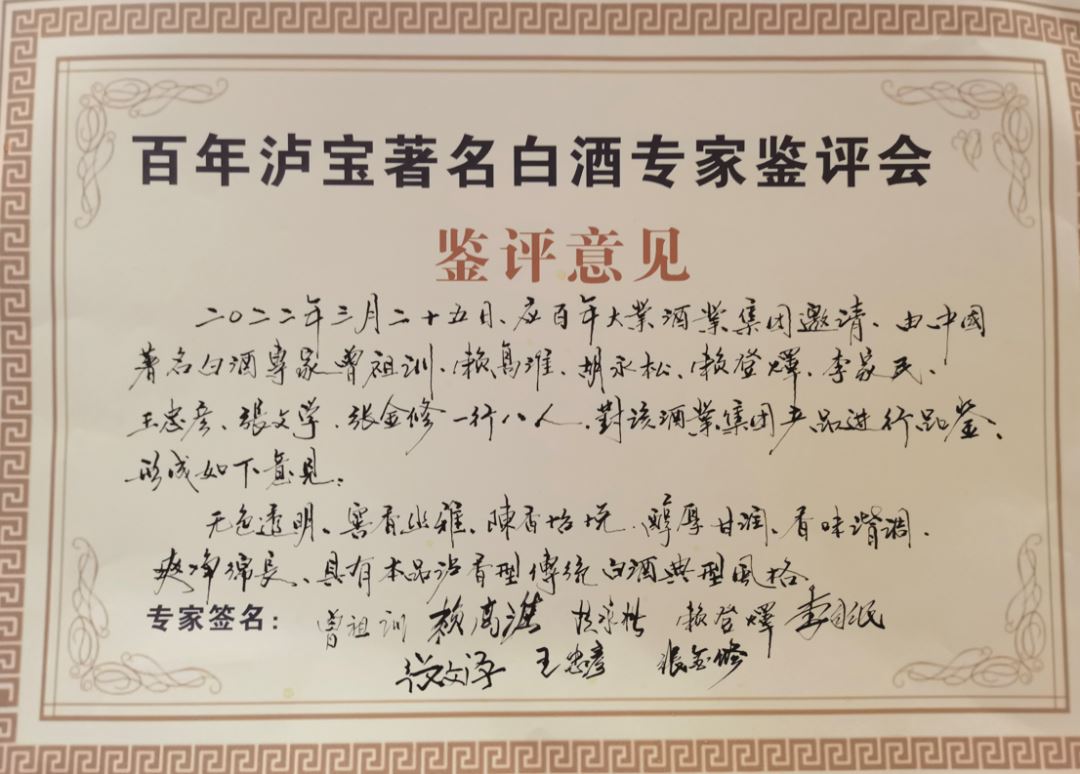 百年泸宝著名白酒专家鉴评会
鉴评意见
二〇二二年三月二十五日、应百年大業酒業集团邀请、由中國
著名白酒專家曾祖训、賴高淮、胡永松、賴登燡、李家民、
王忠彦、張文学、张金修一行八人、對该酒業集团产品进行品鉴、
形成如下意見:
无色透明、窖香幽雅、陳香怡悦、醇厚甘润、香味谐调、
爽净綿長、具有本品泸香型傳统白酒典型風格
专家签名: 曾祖训 赖高淮 胡永松 賴登燡 李家民
张文学 王忠彦 張金修